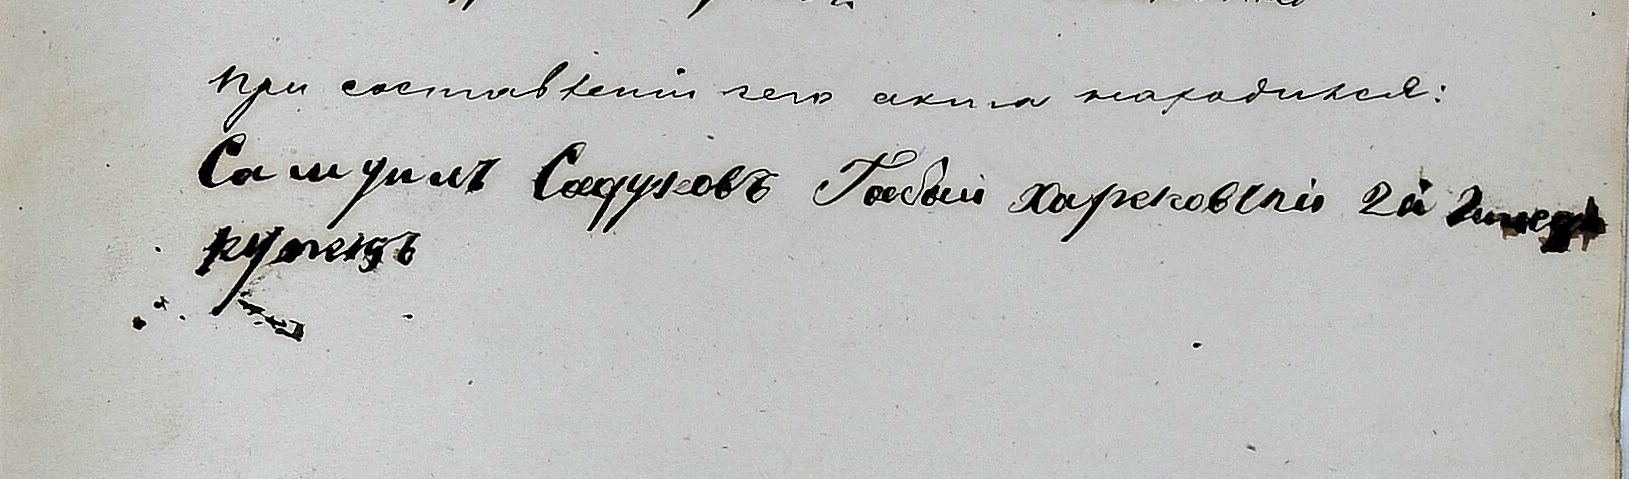 при составленіи сего акта находился:
Самуилъ Садуковъ Габай Харьковскій 2й Гильд
купецъ